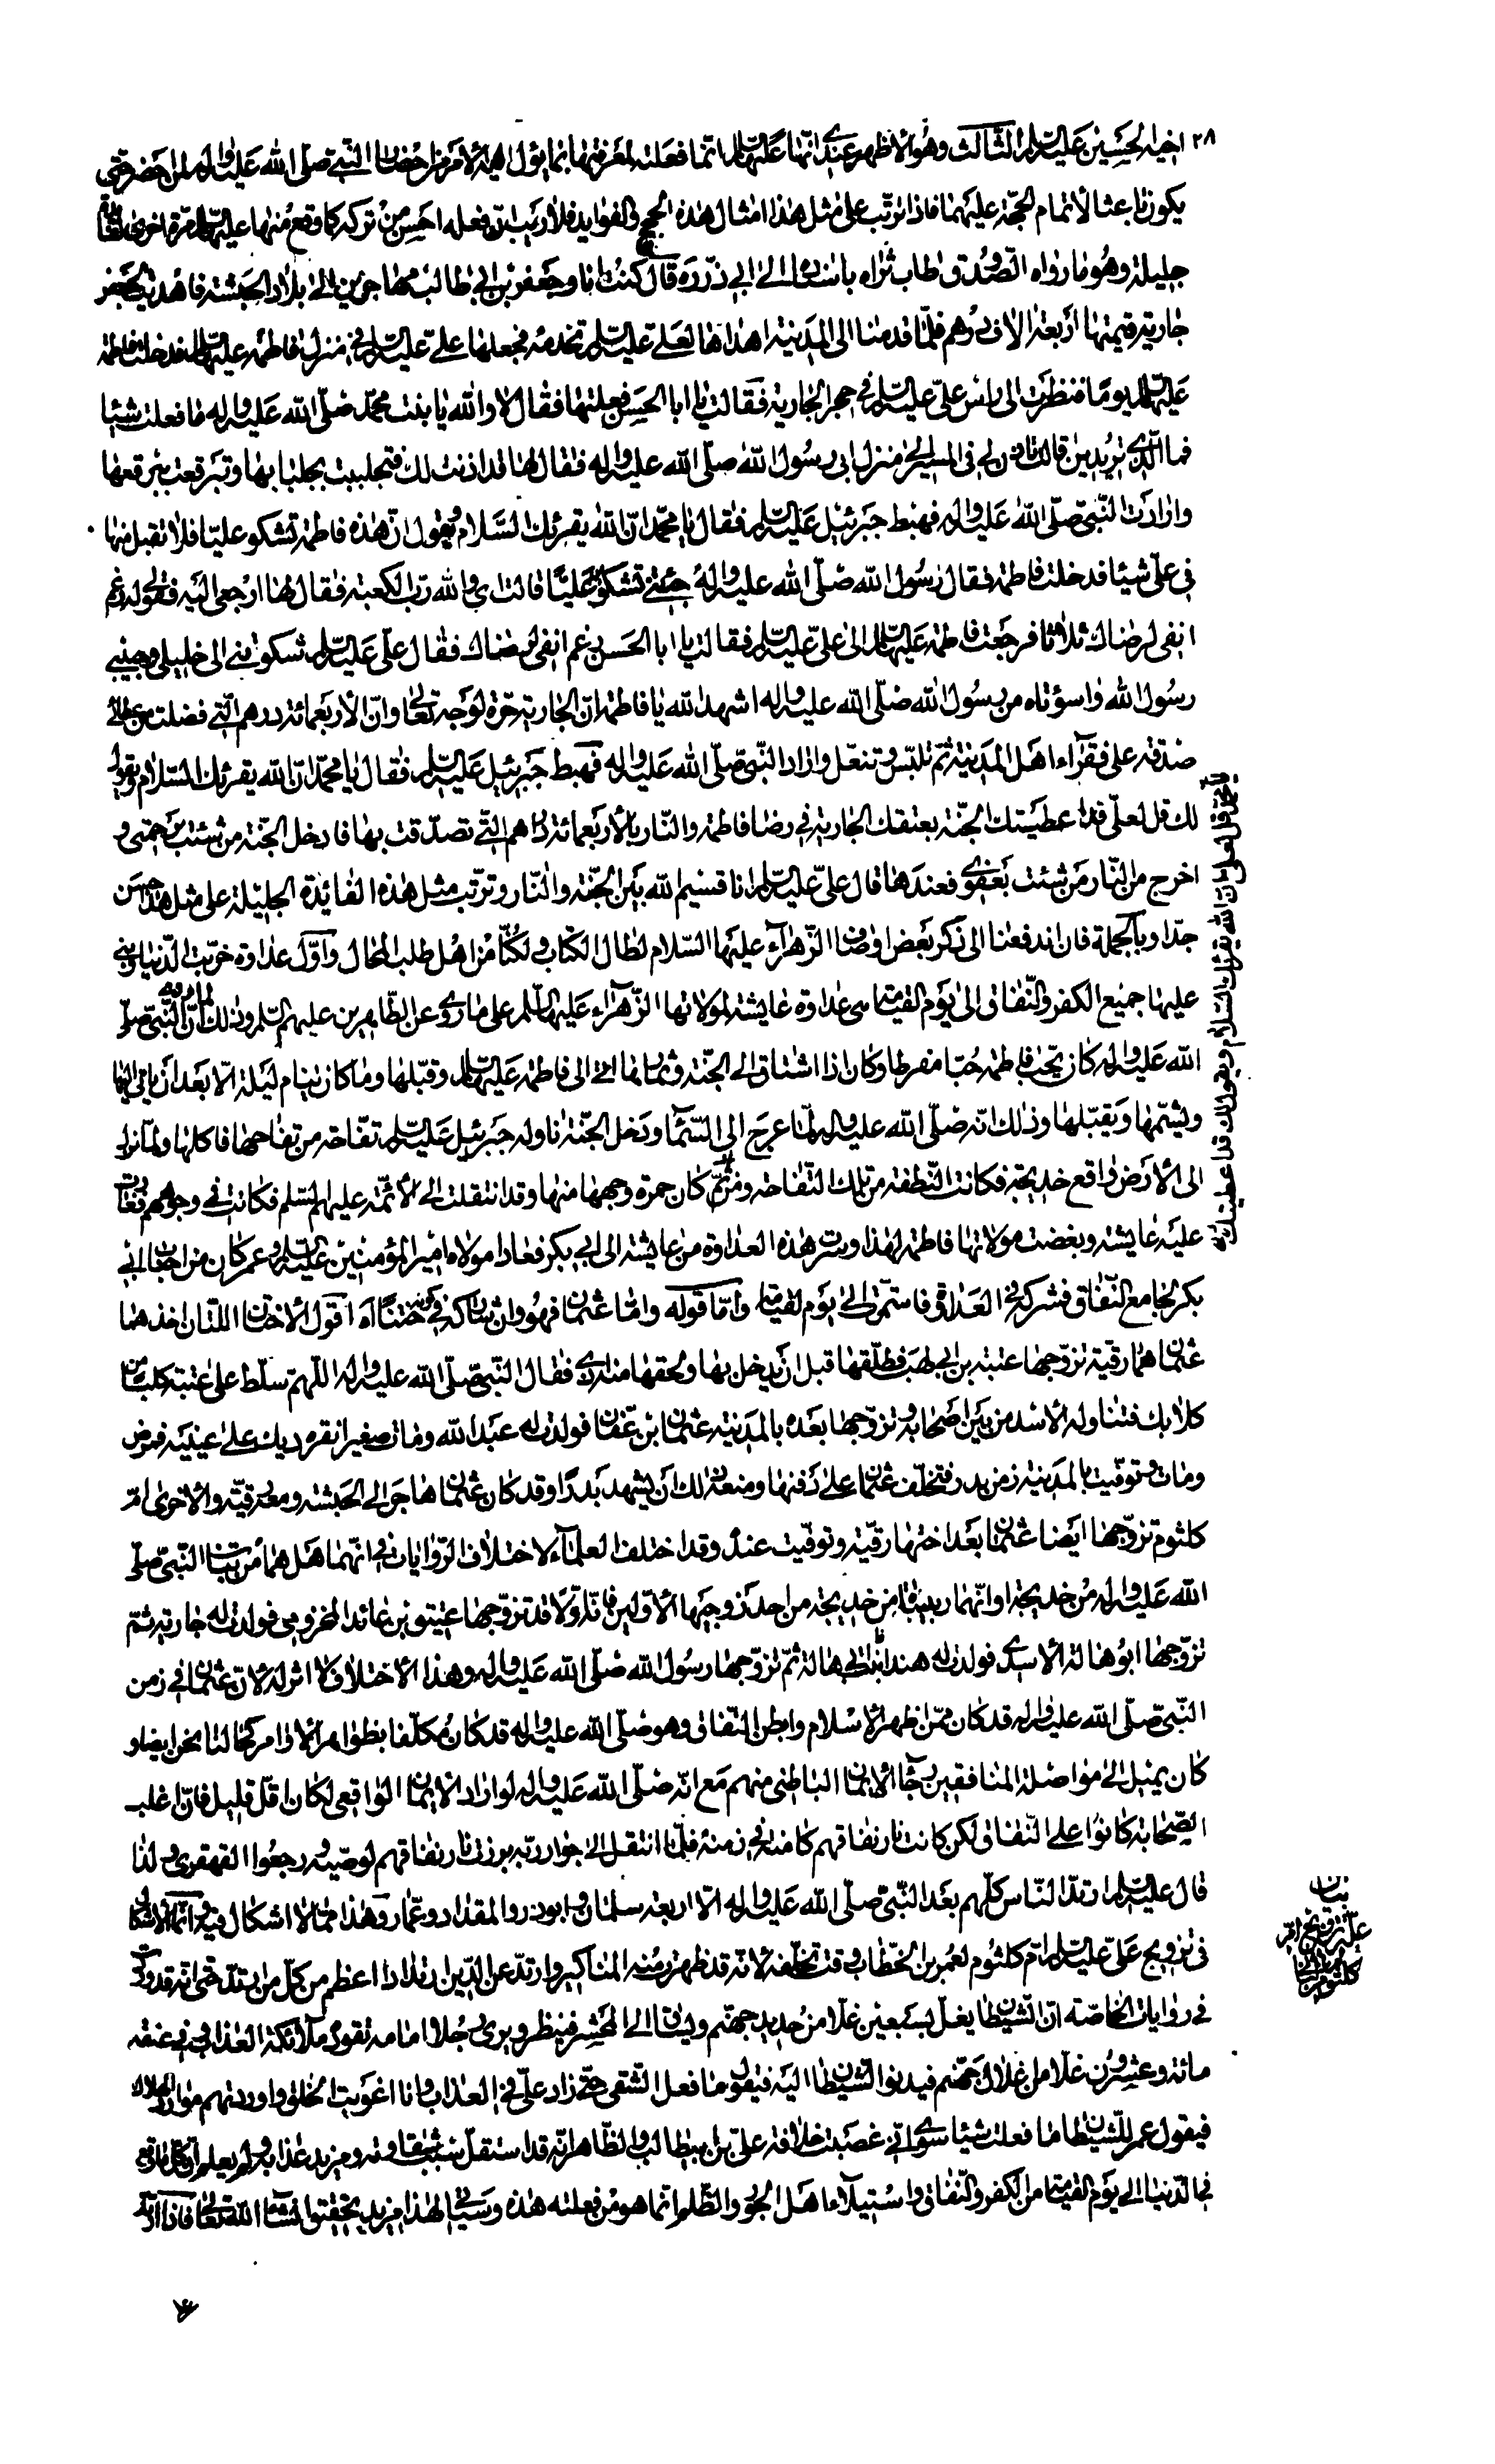 ٢٨ اخيه الحسين عليه السلام الثالث وهو الاظهر عندي انها عليها السلام انما فعلته لمعرفتها بما يؤل اليه الامر من احضار النبي صلى الله عليه واله لمن حضر حتى
يكون باعثا لاتمام الحجة عليهما فاذا ترتب على مثل هذا امثال هذه الحجج والفوايد فلا ريب ان فعله احسن من تركه كما وقع منها عليها السلام مرة اخرى
جليلة وهو ما رواه الصدوق طاب ثراه باسناده الى ابي ذر ره قال كنت انا وجعفر بن ابي طالب مهاجرين الى بلاد الحبشة فاهديت لجعفر
جارية قيمتها اربعة الاف درهم فلما قدمنا الى المدينة اهداها لعلي عليه السلام تخدمه فجعلها علي عليه السلام في منزل فاطمة عليها السلام فدخلت فاطمة
عليها السلام يوما فنظرت الى راس علي عليه السلام في حجر الجارية فقالت يا ابا الحسن فعلتها فقال لا والله يا بنت محمد صلى الله عليه واله ما فعلت شيئا
فما الذي تريدين قالت تاذن لي في المسير الى منزل ابي رسول الله صلى الله عليه واله فقال لها قد اذنت لك فتجلببت بجلبابها وتبرقعت ببرقعها
وارادت النبي صلى الله عليه واله فهبط جبرئيل عليه السلام فقال يا محمد ان الله يقرئك السلام ويقول ان هذه فاطمة تشكو عليا فلا تقبل منها
في علي شيئا فدخلت فاطمة فقال رسول الله صلى الله عليه واله جئتي تشكين عليا قالت اي والله رب الكعبة فقال لها ارجعي اليه فقولي له رغم
انفي لرضاك ثلاثا فرجعت فاطمة عليها السلام الى علي عليه السلام فقالت يا ابا الحسن رغم انفي لرضاك فقال علي عليه السلام شكوتني الى خليلي وحبيبي
رسول الله واسوتاه من رسول الله صلى الله عليه واله اشهد الله يا فاطمة ان الجارية حرة لوجه الله تعالى وان الاربعمائة درهم التي فضلت من عطائي
صدقة على فقراء اهل المدينة ثم تلبس وتنعل واراد النبي صلى الله عليه واله فهبط جبرئيل عليه السلام فقال يا محمد ان الله يقرئك السلام ويقول
لك قل لعلي قد اعطيتك الجنة بعتقك الجارية في رضا فاطمة والنار بالاربعمائة درهم التي تصدقت بها فادخل الجنة من شئت برحمتي و
اخرج من النار من شئت بعفوي فعندها قال علي عليه السلام انا قسيم الله بين الجنة والنار وترتب مثل هذه الفائدة الجليلة على مثل هذا حسن
جدا وبالجملة فان اندفعنا الى ذكر بعض اوصاف الزهراء عليها السلام لطال الكتاب ولكنا من اهل طلب المحال واول عداوة خربت الدنيا وبني
عليها جميع الكفر والنفاق الى يوم القيامة هي عداوة عايشة لمولاتها الزهراء عليها السلام على ما روي عن الطاهرين عليهم السلم وذلك ان النبي صلى
الله عليه واله كان يحب فاطمة حبا مفرطا وكان اذا اشتاق الى الجنة وثمارها اتى الى فاطمة عليها السلام وقبلها وما كان ينام ليلة الا بعد ان ياتي اليها
ويشمها ويقبلها وذلك انه صلى الله عليه واله لما عرج الى السماء ودخل الجنة ناوله جبرئيل عليه السلام تفاحة من تفاحها فاكلها ولما نزل
الى الارض واقع خديجة فكانت النطفة من تلك التفاحة ومن ثم كان حمرة وجهها منها وقد انتقلت الى الائمة عليهم السلم فكانت في وجوههم فغارت
عليه عايشة وبغضت مولاتها فاطمة لهذا وسرت هذه العداوة من عايشة الى ابي بكر فعادا مولاه امير المؤمنين عليه السلام وعمر كان من احباء ابي
بكر بجامع النفاق فشركه في العداوة فاستمرت الى يوم القيامة واما قوله واما عثمان فهو وان شاركه في كونه ختنا اه اقول الاختان اللتان اخذهما
عثمان هما رقية تزوجها عتبة بن ابي لهب فطلقها قبل ان يدخل بها ولحقها منه اذى فقال النبي صلى الله عليه واله اللهم سلط على عتبة كلبا من
كلابك فتناوله الاسد من بين اصحابه وتزوجها بعده بالمدينة عثمان ابن عفان فولدت له عبد الله ومات صغيرا نقره ديك على عينيه فمرض
ومات وتوفيت بالمدينة زمن بدر فتخلف عثمان على دفنها ومنعه ذلك ان يشهد بدرا وقد كان عثمان هاجر الى الحبشة ومعه رقية والاخرى ام
كلثوم تزوجها ايضا عثمان بعد اختها رقية وتوفيت عنده وقد اختلف العلماء لاختلاف الروايات في انهما هل هما من بنات النبي صلى
الله عليه واله من خديجة او انهما ربيبتاه من خديجة من احد زوجيها الاولين فانه اولا قد تزوجها عتيق بن عائد المخزومي فولدت له جارية ثم
تزوجها ابو هالة الاسدي فولدت له هند ابن ابي هالة ثم تزوجها رسول الله صلى الله عليه واله وهذا الاختلاف لا اثر له لان عثمان في زمن
النبي صلى الله عليه واله قد كان ممن اظهر الاسلام وابطن النفاق وهو صلى الله عليه واله قد كان مكلفا بظواهر الاوامر كحالنا نحن ايضا و
كان يميل الى مواصلة المنافقين رجاء الايمان الباطني منهم مع انه صلى الله عليه واله لو اراد الايمان الواقعي لكان اقل قليل فان اغلب
الصحابة كانوا على النفاق لكن كانت نار نفاقهم كامنة في زمنه فلما انتقل الى جوار ربه برزت نار نفاقهم لوصيه ورجعوا القهقرى ولذا
قال عليه السلام ارتد الناس كلهم بعد النبي صلى الله عليه واله الا اربعة سلمان وابوذر والمقداد وعمار وهذا مما لا اشكال فيه وانما الاشكال
في تزويج علي عليه السلام ام كلثوم لعمر بن الخطاب وقت تخلفه لانه قد ظهرت منه المناكير وارتد عن الدين ارتدادا اعظم من كل من ارتد حتى انه قد وردت
في روايات الخاصة ان الشيطان يغل بسبعين غلا من حديد جهنم ويساق الى المحشر فينظر ويرى رجلا امامه تقوده ملائكة العذاب وفي عنقه
مائة وعشرون غلا من اغلال جهنم فيدنو الشيطان اليه فيقول ما فعل الشقي حتى زاد علي في العذاب وانا اغويت الخلق واوردتهم موارد الهلاك
فيقول عمر للشيطان ما فعلت شيئا سوى اني غصبت خلافة علي بن ابيطالب والظاهر انه قد استقل سبب شقاوته ومزيد عذابه ولم يعلم ان كل ما وقع
في الدنيا الى يوم القيامة من الكفر والنفاق واستيلاء اهل الجور والظلم انما هو من فعلته هذه وسياتي لهذا مزيد تحقيق انشاء الله تعالى فاذا ارتد
قل لعلي ان الله يقرئك السلام ويقول لك قد اعطيتك
بيان
علة تزويج ام
كلثوم